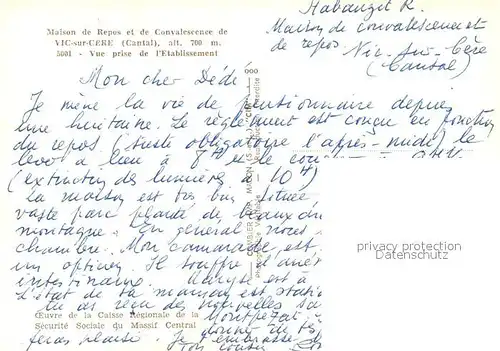 Maison de Repos et de Convalescence de
VIC-sur-CERE (Cantal), alt. 700 m.
5001 - Vue prise de l'Etablissement
Habauzit R.
Maison de convalescence et
de repos Vic-sur-Cère
(Cantal)
Mon cher Dédé
Je mène la vie de pensionnaire depuis
une huitaine. Le règlement est conçu en fonction
du repos (sieste obligatoire l'après-midi) le
lever a lieu à 8H et le
(extinction des lumières à 10H)
La maison est très bien située
vaste parc planté de beaux
montagne. En général nous
chambre. Mon camarade est
un opticien. Il souffre d'
intestinale. est à
l'état de la maman est
tu as reçu des nouvelles
Montpezat
donner de tes
feras plaisir. Je t'embrasse
Ton cousin
Œuvre de la Caisse Régionale de la
Sécurité Sociale du Massif Central
COMBIER IMP. MACON
privacy protection
Datenschutz